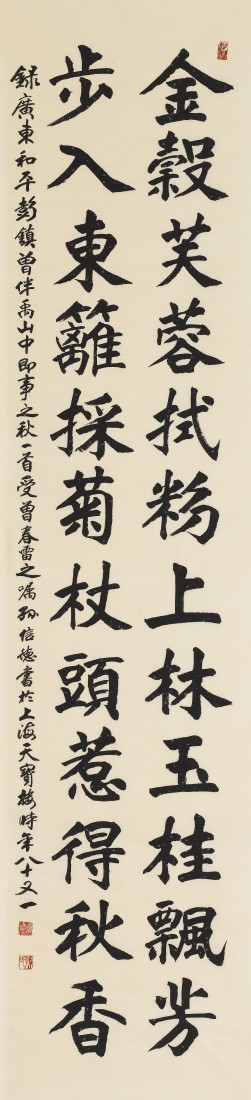 金穀芙蓉拭粉上林玉桂飄芳
步入東籬採菊杖頭惹得秋香
錄廣東和平彭鎮曾伴禹山中即事之秋一首受曾春雷之囑孙信德書於上海天寶楼時年八十又一